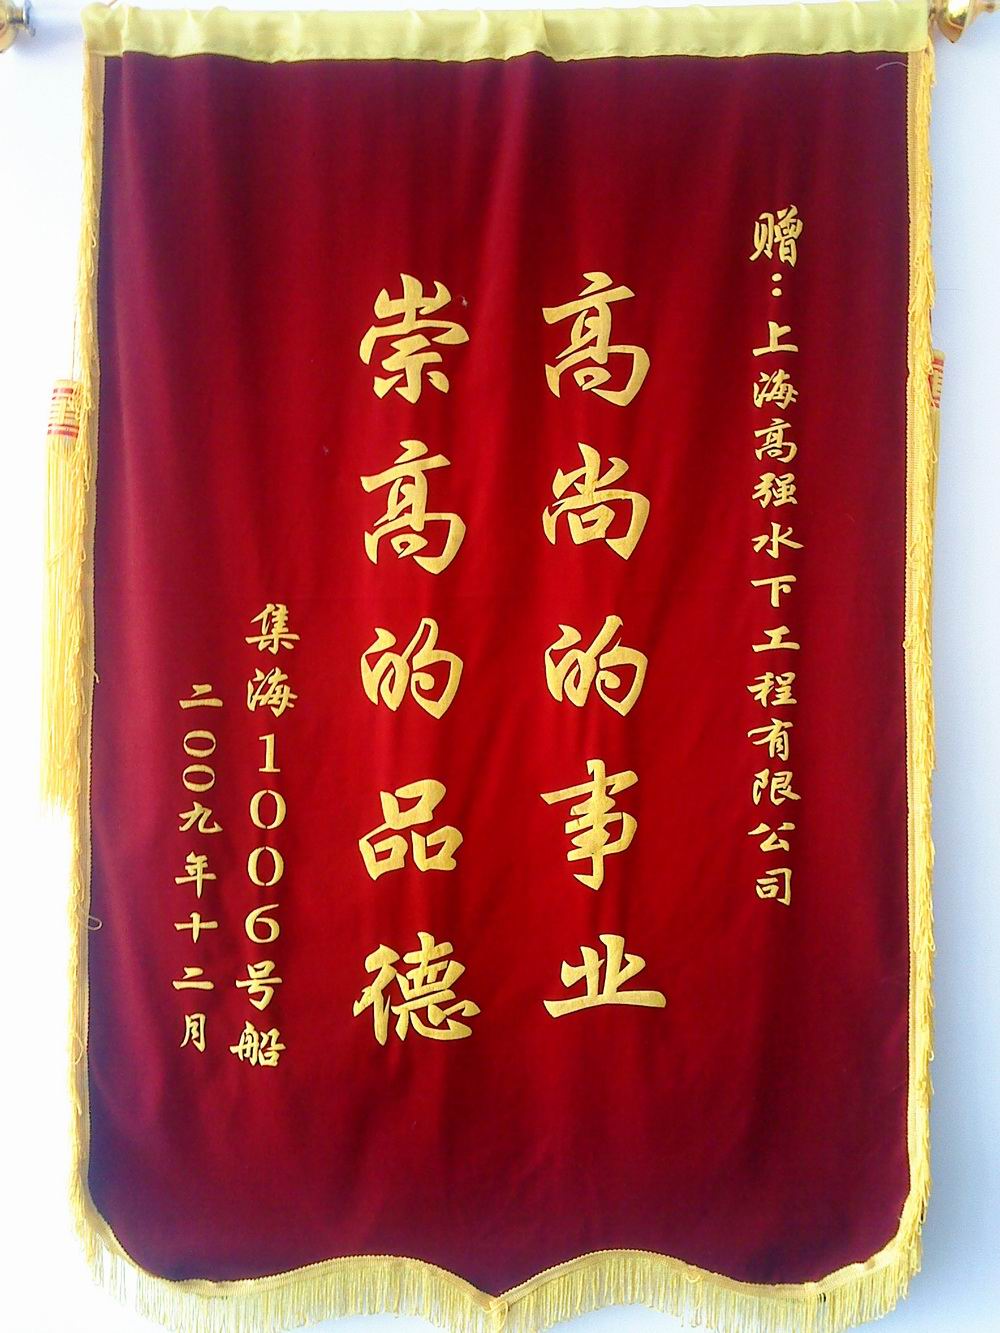 赠：上海高强水下工程有限公司
高尚的事业
崇高的品德
集海1006号船
二〇〇九年十二月